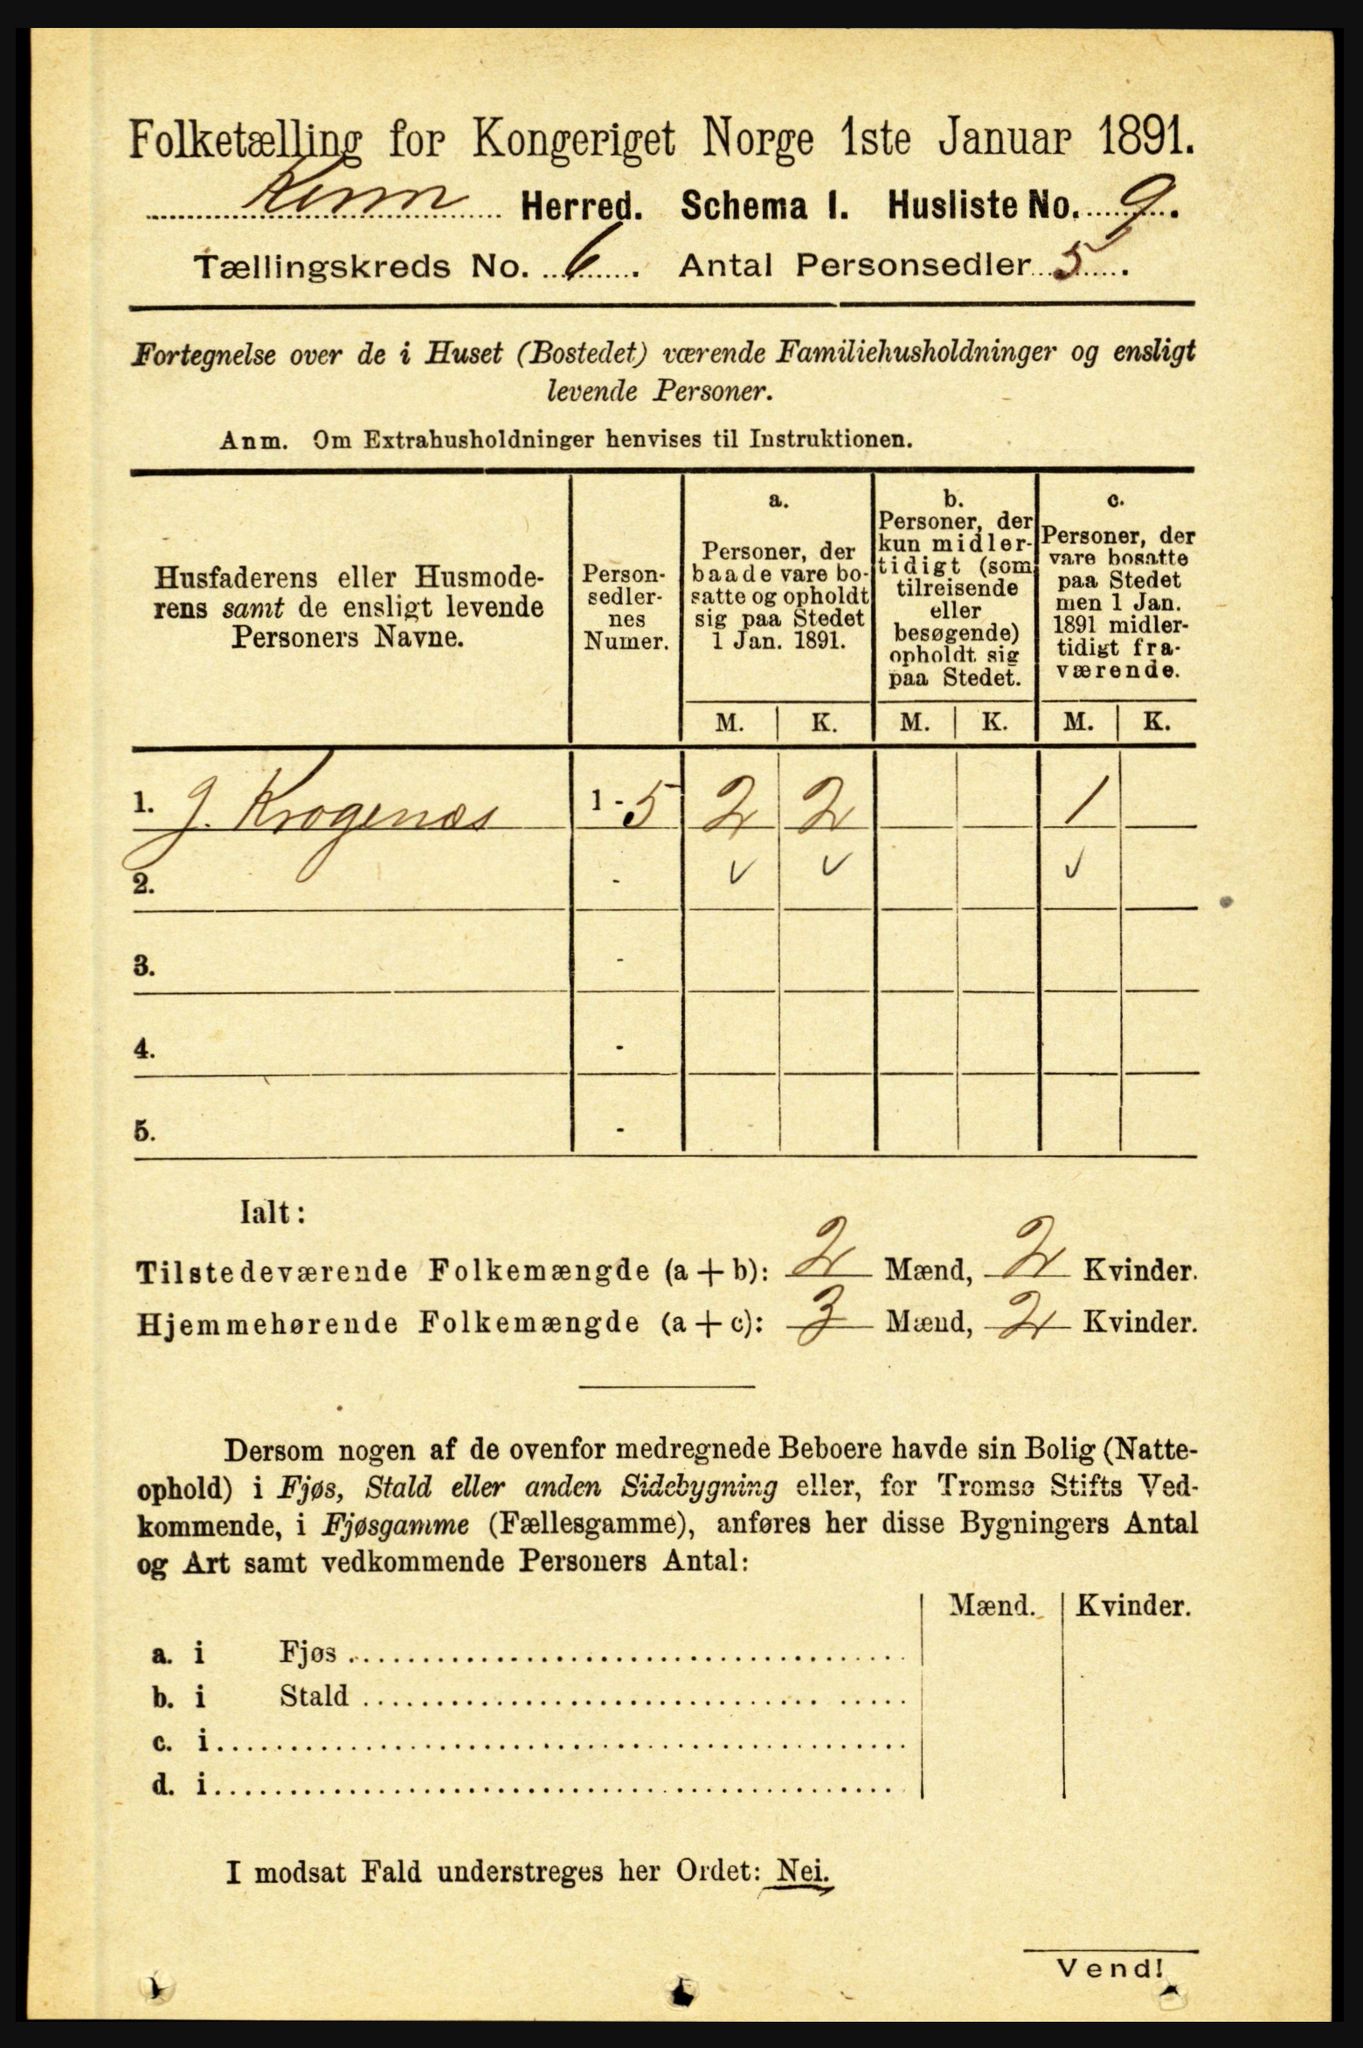 Folketælling for Kongeriget Norge 1ste Januar 1891.
Kinn Herred. Schema I. Husliste No. 9.
Tællingskreds No. 6. Antal Personsedler 5.
Fortegnelse over de i Huset (Bostedet) værende Familiehusholdninger og ensligt
levende Personer.
Anm. Om Extrahusholdninger henvises til Instruktionen.
Husfaderens eller Husmode-
rens samt de ensligt levende
Personers Navne.
Person-
sedler-
nes
Numer.
a.
Personer, der
baade vare bo-
satte og opholdt
sig paa Stedet
1 Jan. 1891.
b.
Personer, der
kun midler-
tidigt (som
tilreisende
eller
besøgende)
opholdt sig
paa Stedet.
c.
Personer, der
vare bosatte
paa Stedet
men 1 Jan.
1891 midler-
tidigt fra-
værende.
M. K. M. K. M. K.
1. J. Krogenæs 1 - 5 2 2 1
2. - ✓ ✓ ✓
3. -
4. -
5. -
Ialt:
Tilstedeværende Folkemængde (a + b): 2 Mænd, 2 Kvinder.
Hjemmehørende Folkemængde (a + c): 3 Mænd, 2 Kvinder.
Dersom nogen af de ovenfor medregnede Beboere havde sin Bolig (Natte-
ophold) i Fjøs, Stald eller anden Sidebygning eller, for Tromsø Stifts Ved-
kommende, i Fjøsgamme (Fællesgamme), anføres her disse Bygningers Antal
og Art samt vedkommende Personers Antal:
Mænd. Kvinder.
a. i Fjøs
b. i Stald
c. i
d. i
I modsat Fald understreges her Ordet: Nei.
Vend!